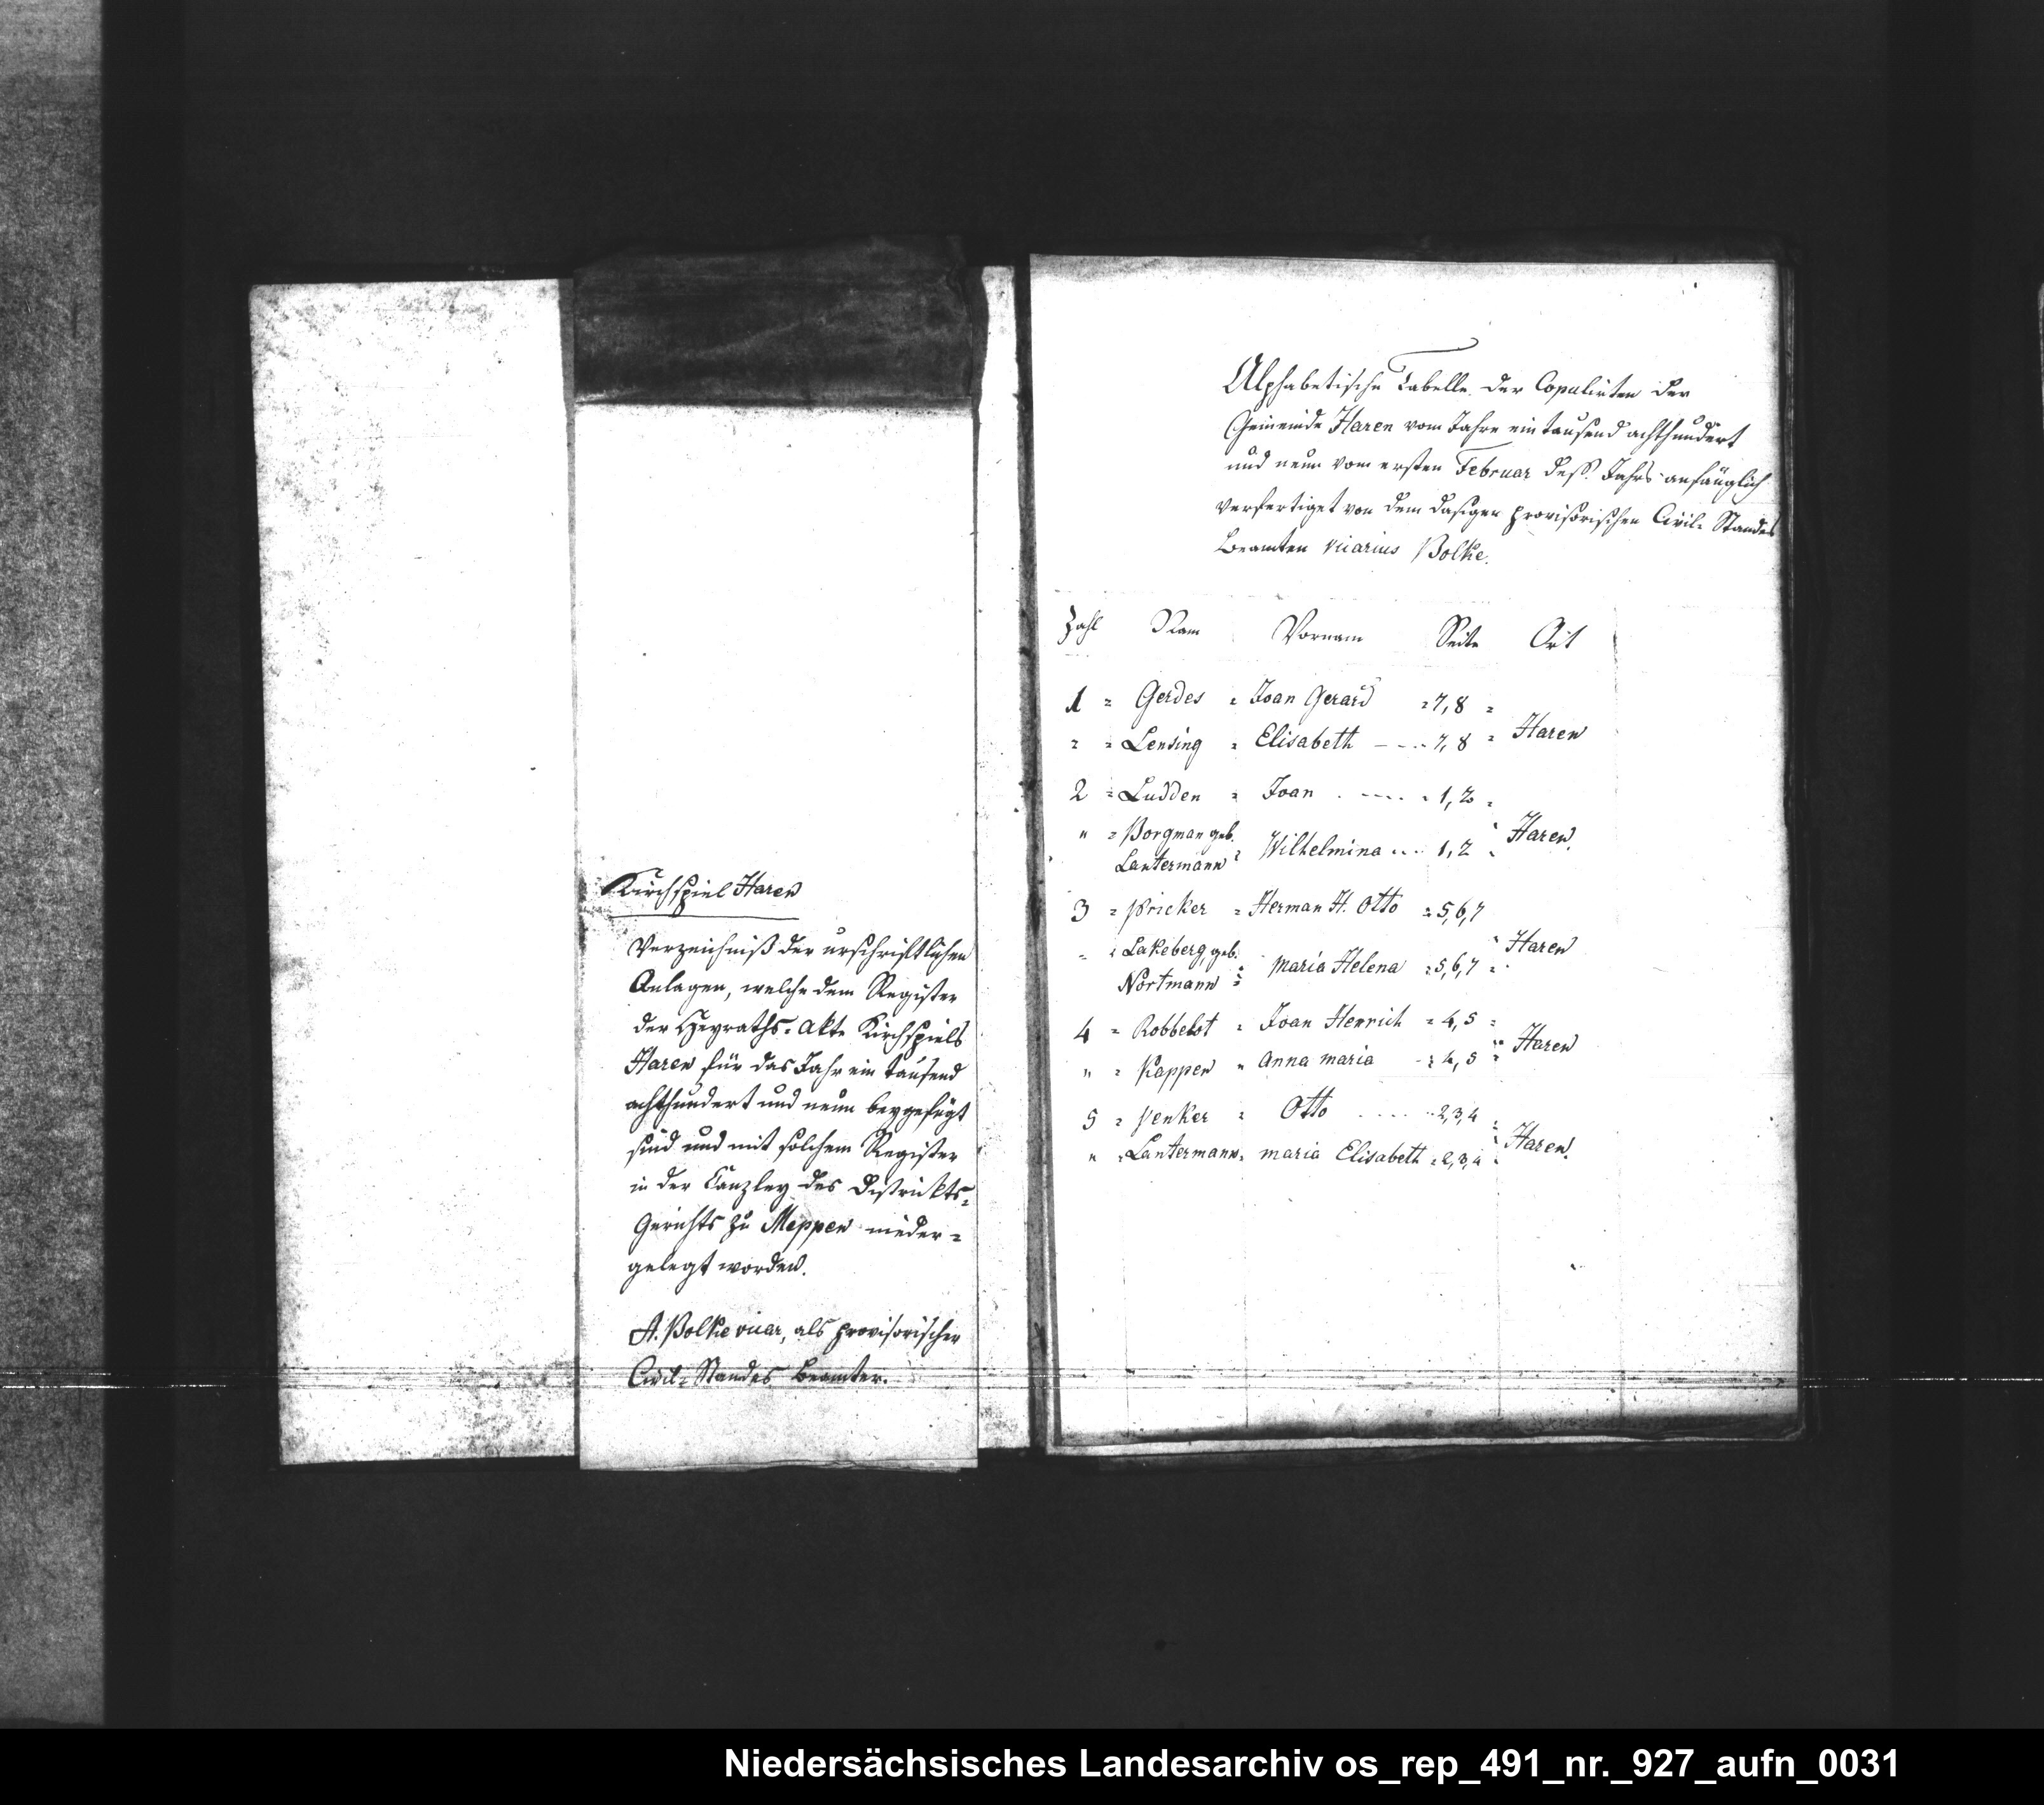 Kirchspiel Haren
Verzeichniß der urschriftlichen
Anlagen, welche dem Register
der Heyraths-Akte Kirchspiels
Haren für das Jahr ein tausend
achthundert und neun beygefügt
sind und mit solchem Register
in der Canzley des Districkts-
Gerichts zu Meppen nieder-
gelegt worden.
A. Bolke vicar, als provisorischer
Civil-Standes Beamter.
Alphabetische Tabelle der Copulirten der
Gemeinde Haren vom Jahre ein tausend achthundert
und neun vom ersten Februar dess. Jahrs anfänglich
verfertiget von dem dasigen provisorischen Civil-Standes
Beamten vicarius Bolke.
Zahl Nam Vornam Seite Ort
1 = Gerdes = Joan Gerard = 7, 8 =
" = Lensing = Elisabeth - - - 7, 8 = Haren
2 = Ludden = Joan . - - - . 1, 2 =
" = Borgman geb.
Lantermann = Wilhelmina ... 1, 2 Haren.
3 = Pricker = Herman H. Otto = 5, 6, 7
" = Lakeberg, geb.
Nortmann = Maria Helena = 5, 6, 7 = Haren
4 = Robbelot = Joan Henrich = 4, 5 =
" = Kappen = Anna Maria - = 4, 5 = Haren
5 = Penker = Otto ..... 2, 3, 4
" = Lantermann = Maria Elisabeth = 2, 3, 4 Haren.
Niedersächsisches Landesarchiv os_rep_491_nr._927_aufn_0031